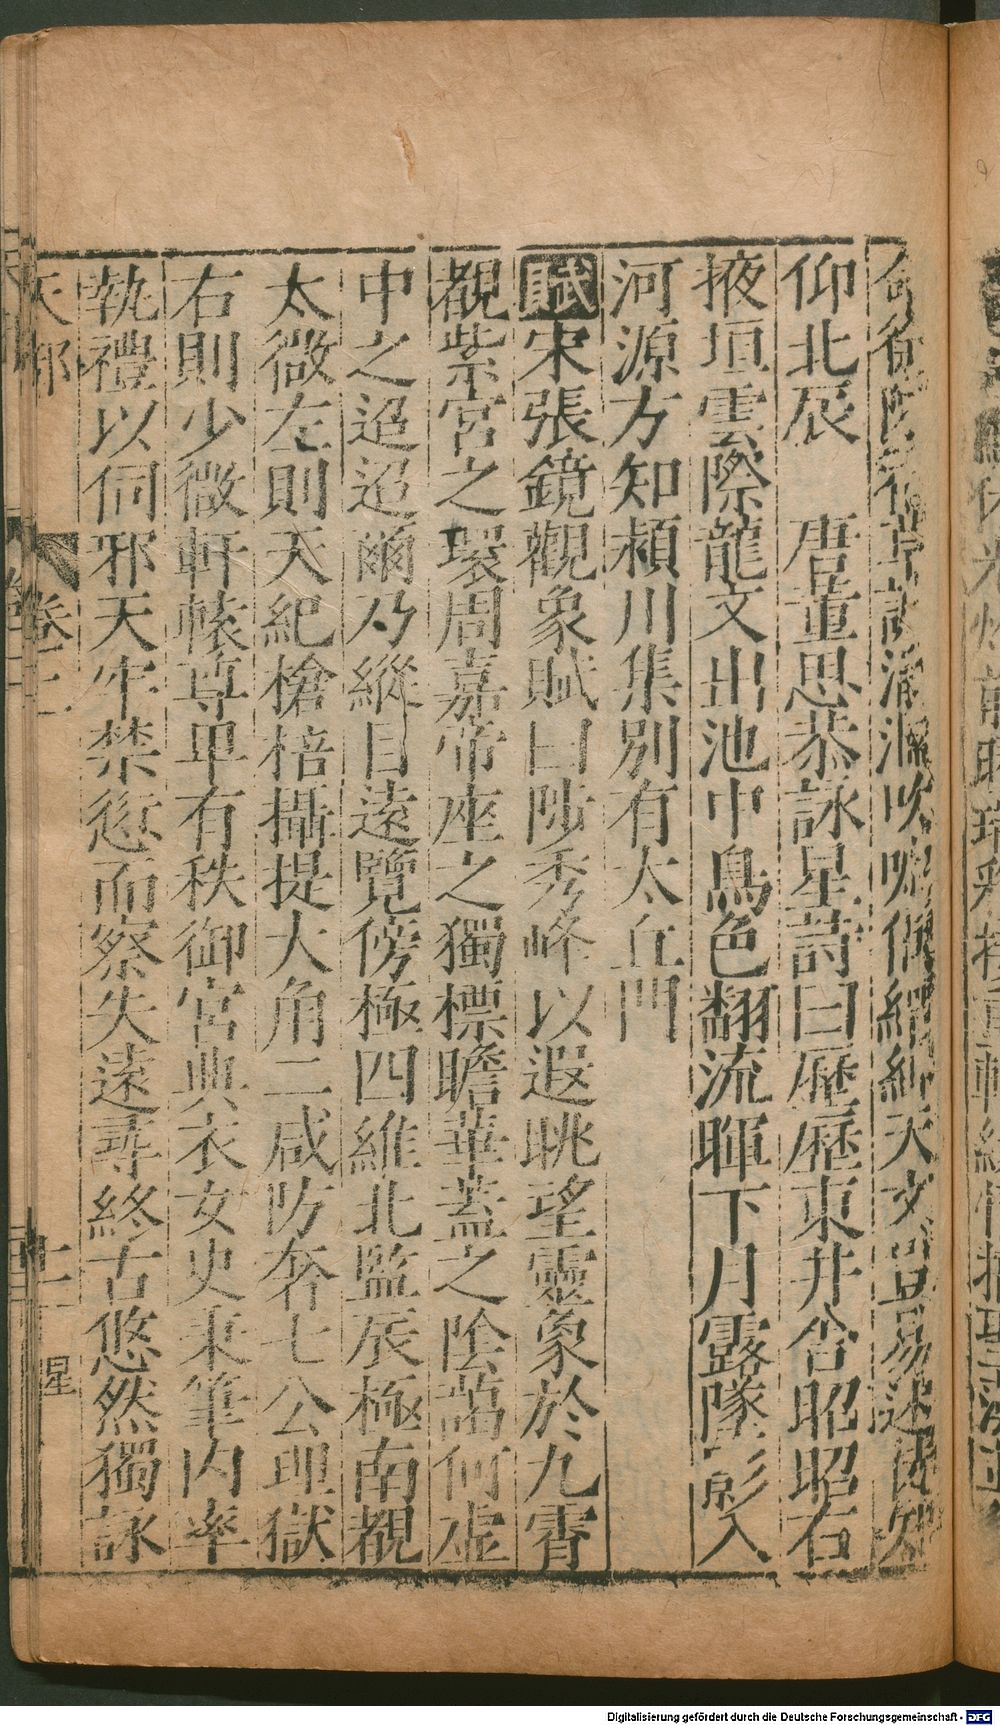 天文豈易述徒知
仰北辰　唐董思恭詠星詩曰歷歷東井舍昭昭右
掖垣雲際龍文出池中鳥色翻流暉下月露墜彩入
河源方知潁川集別有太丘門
賦宋張鏡觀象賦曰陟秀峰以遐眺望靈象於九霄
覩紫宮之環周嘉帝座之獨標瞻華蓋之陰藹何虚
中之迢迢爾乃縱目遠覽傍極四維北監辰極南覩
太微左則天紀槍棓攝提大角二咸防奔七公理獄
右則少微軒轅尊卑有秩御宮典衣女史秉筆内率
執禮以伺邪天牢禁愆而察失遠尋終古悠然獨詠
天部　卷二　星
Digitalisierung gefördert durch die Deutsche Forschungsgemeinschaft - DFG